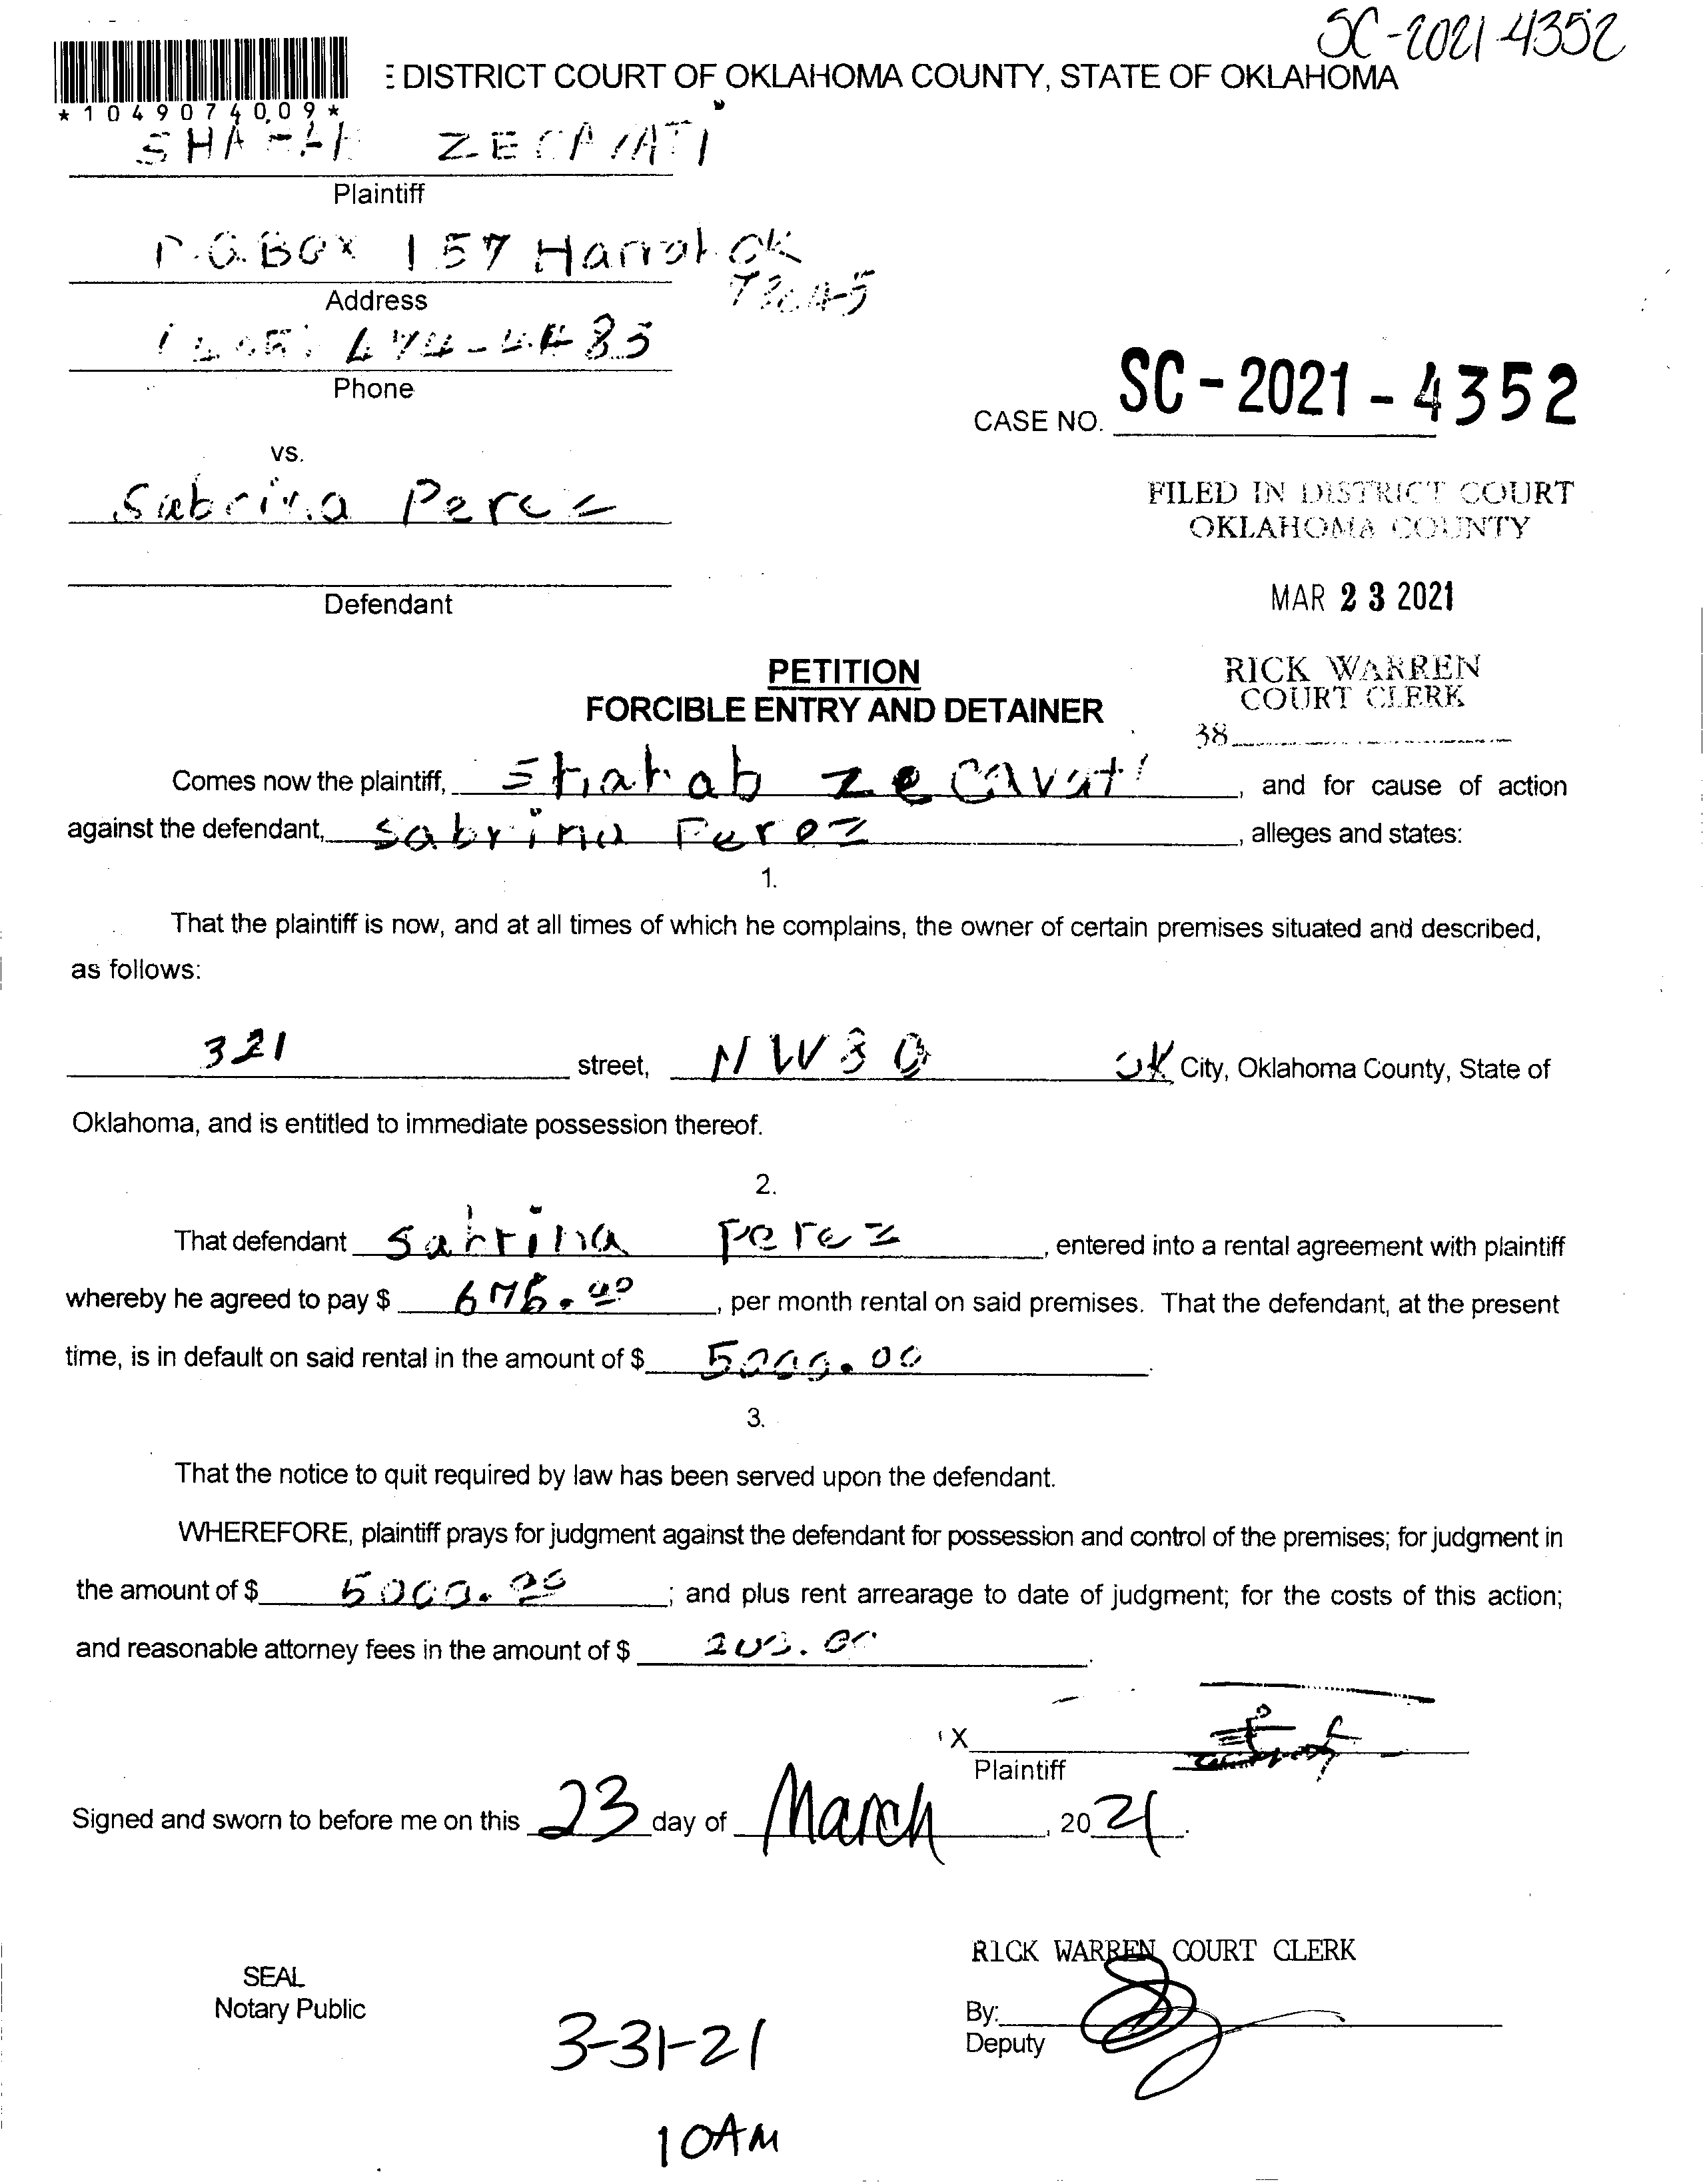 SC-2021-4352
DISTRICT COURT OF OKLAHOMA COUNTY, STATE OF OKLAHOMA
*1049074009*
ZECAVATI
Plaintiff
P.O.BOX 157 Harrah OK
Address
Phone
CASE NO. SC-2021-4352
vs.
Sabrina Perez
FILED IN DISTRICT COURT
OKLAHOMA COUNTY
Defendant
MAR 23 2021
PETITION
RICK WARREN
COURT CLERK
FORCIBLE ENTRY AND DETAINER
38
Comes now the plaintiff, Shahab Zecavati, and for cause of action
against the defendant, Sabrina Perez, alleges and states:
1.
That the plaintiff is now, and at all times of which he complains, the owner of certain premises situated and described,
as follows:
321 street, NW 80 OK City, Oklahoma County, State of
Oklahoma, and is entitled to immediate possession thereof.
2.
That defendant Sabrina Perez, entered into a rental agreement with plaintiff
whereby he agreed to pay $ 675.00, per month rental on said premises. That the defendant, at the present
time, is in default on said rental in the amount of $ 5000.00.
3.
That the notice to quit required by law has been served upon the defendant.
WHEREFORE, plaintiff prays for judgment against the defendant for possession and control of the premises; for judgment in
the amount of $ 5000.00; and plus rent arrearage to date of judgment; for the costs of this action;
and reasonable attorney fees in the amount of $ 200.00.
X
Plaintiff
Signed and sworn to before me on this 23 day of March, 2021.
RICK WARREN COURT CLERK
SEAL
Notary Public
By:
Deputy
3-31-21
10AM